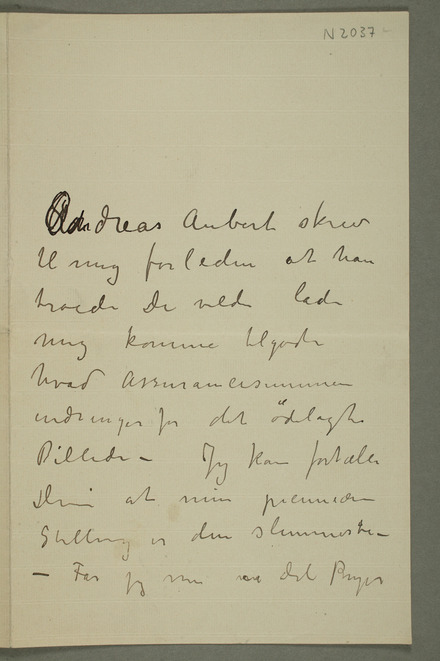 N 2037
Andreas Aubert skrev
til mig forleden at han
troede De vilde lade
mig komme tilgode
hvad Assurancesummen
indbringer for det ödelagte
Billede – Jeg kan fortælle
Dem at min pecuniære
Stilling er den slemmeste –
– Får jeg nu det Penger